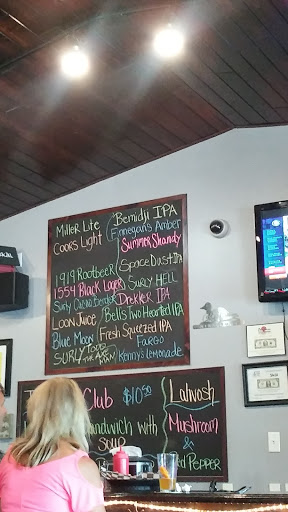 Miller Lite
Coors Light
Bemidji IPA
Finnegan's Amber
Summer Shandy
1919 Rootbeer
Space Dust IPA
1554 Black Lager
Surly HELL
Surly Cacao Bender
Drekker IPA
Loon Juice
Bell's Two Hearted IPA
Blue Moon
Fresh Squeezed IPA
SURLY TODD THE AXE MAN
FARGO
Kenny's Lemonade
Club $10.50
Sandwich with
SOUP
Lahvosh
Mushroom
&
Red Pepper